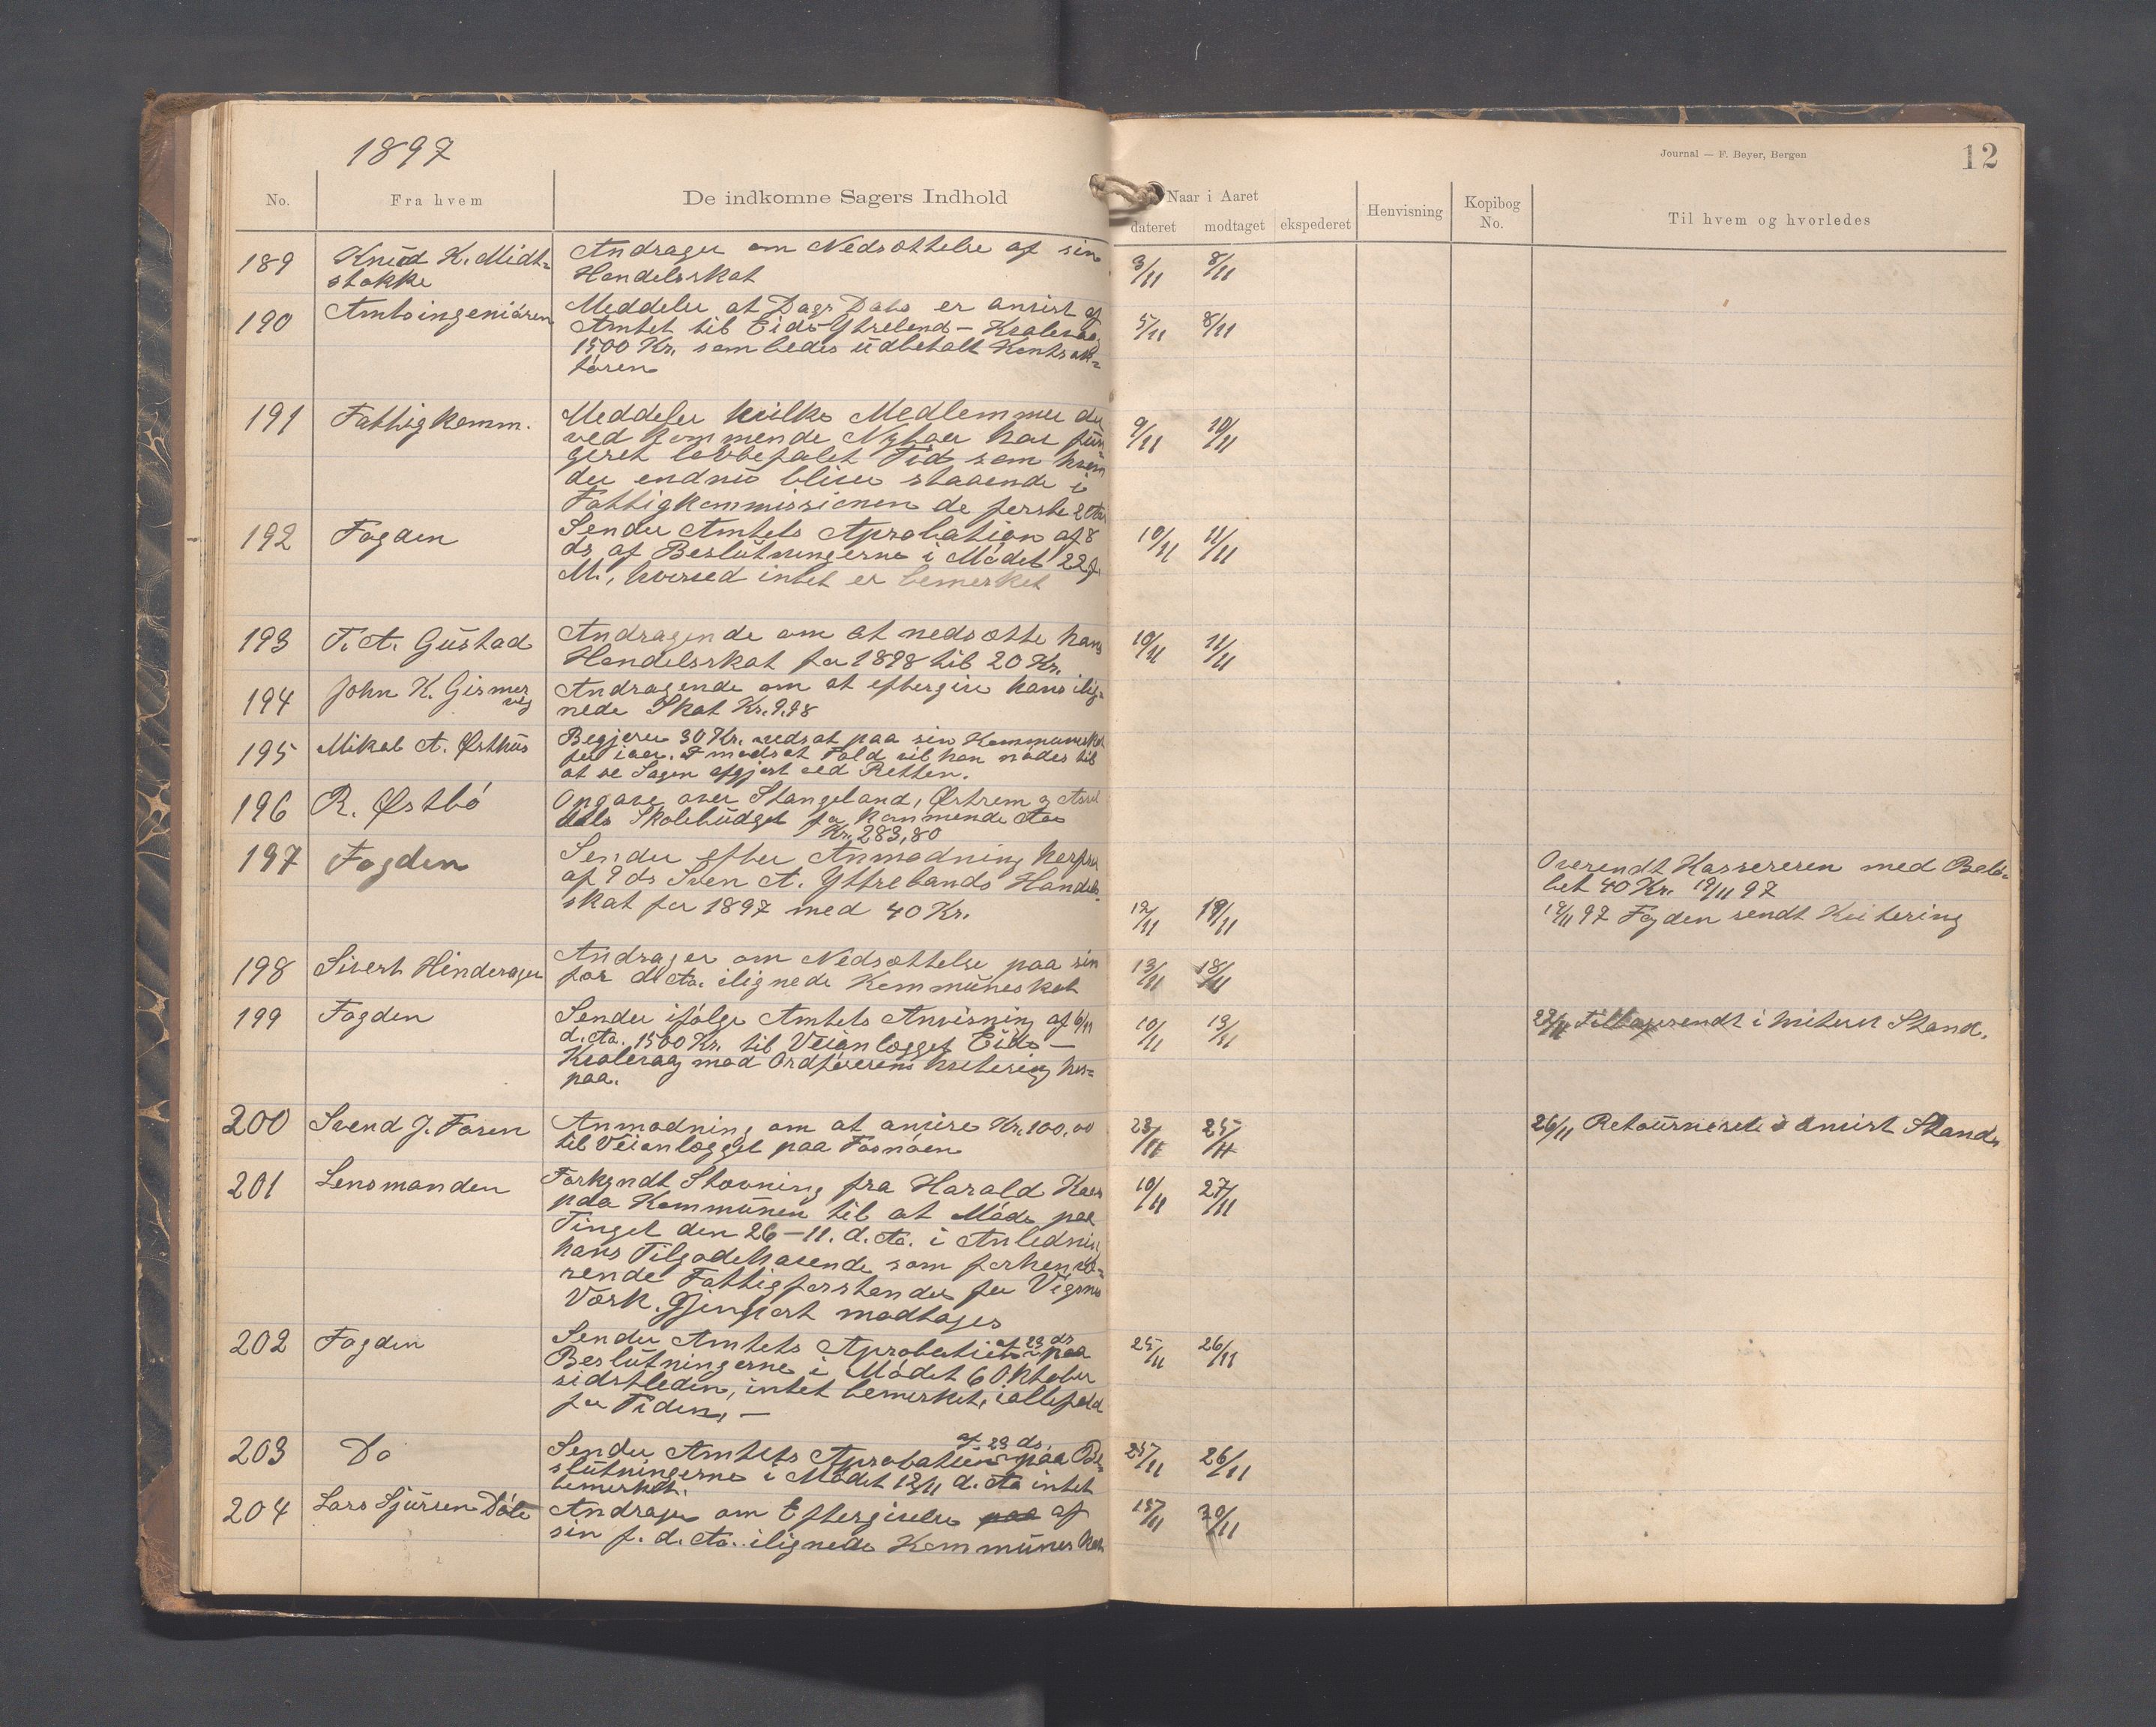 1897
Journal — F. Beyer, Bergen
12
No.
Fra hvem
De indkomne Sagers Indhold
Naar i Aaret
dateret
modtaget
ekspederet
Henvisning
Kopibog No.
Til hvem og hvorledes
189 Knud K. Midt= Andrager om Nedsættelse af sin 3/11 8/11
stokke Handelsskat
190 Amtsingeniøren Meddeler at Dags Dato er anvist af 5/11 8/11
Amtet til Eide-Ytreland-
1500 Kr. som bedes udbetalt Kontrak=
tøren
191 Fattigkomm. Meddeler hvilke Medlemmer der 9/11 10/11
ved kommende Nytaar har fun=
geret lovbefalet Tid som hvem
der endnu bliver staaende i
Fattigkommissionen de første 2 Aar
192 Fogden Sender Amtets Aprobation af 8 10/11 11/11
ds af Beslutningerne i Mødet 22 f.
M., hvorved intet er bemerket
193 T. A. Gustad Andragende om at nedsætte hans 10/11 11/11
Handelsskat for 1898 til 20 Kr.
194 John K. Gismer Andragende om at eftergive hans ilig=
vig nede Skat Kr. 9,98
195 Mikal A. Østhus Begjærer 30 Kr. nedsat paa sin Kommuneskat
for iaar. I modsat Fald vil han nødes til
at se Sagen afgjort ved Retten.
196 R. Østbø Opgave over Stangeland, Østrem og
Skolebudget for kommende Aar
Kr. 283,80
197 Fogden Sender efter Anmodning herfra
af 9 ds Sven A. Yttrelands Handels
skat for 1897 med 40 Kr. 12/11 19/11
Oversendt Kassereren med Belø=
bet 40 Kr. 19/11 97
19/11 97 Fogden sendt Kvitering
198 Sivert Hinderager Andrager om Nedsættelse paa sin 13/11 18/11
for d. Aa. ilignede Kommuneskat
199 Fogden Sender ifølge Amtets Anvisning af 6/11 10/11 13/11 Tilbagesendt i kviteret Stand.
d. Aa. 1500 Kr. til Veianlægget Eide-
mod Ordførerens kvitering her=
paa.
200 Svend J. Fosen Anmodning om at anvise Kr. 100,00 23/11 25/11 26/11 Retourneret i anvist Stand
til Veianlægget paa Fosnøen
201 Lensmanden Forkyndt Stævning fra Harald 10/11 27/11
paa Kommunen til at Møde paa
Tinget den 26-11. d. Aa. i Anledning
hans Tilgodehavende som forhenvæ=
rende Fattigforstander for Vigsnes
Værk. Gjenpart modtages
202 Fogden Sender Amtets Aprobation af 23 ds paa 25/11 26/11
Beslutningerne i Mødet 6 Oktober
sidstleden, intet bemerket, iallefald
for Tiden. —
203 Do Sender Amtets Aprobation af 23 ds. paa Be= 25/11 26/11
slutningerne i Mødet 12/11 d. Aa intet
bemerket.
204 Lars Sjursen Dale Andrager om Eftergivelse paa af 15/11 30/11
sin f. d. Aa. ilignede Kommuneskat